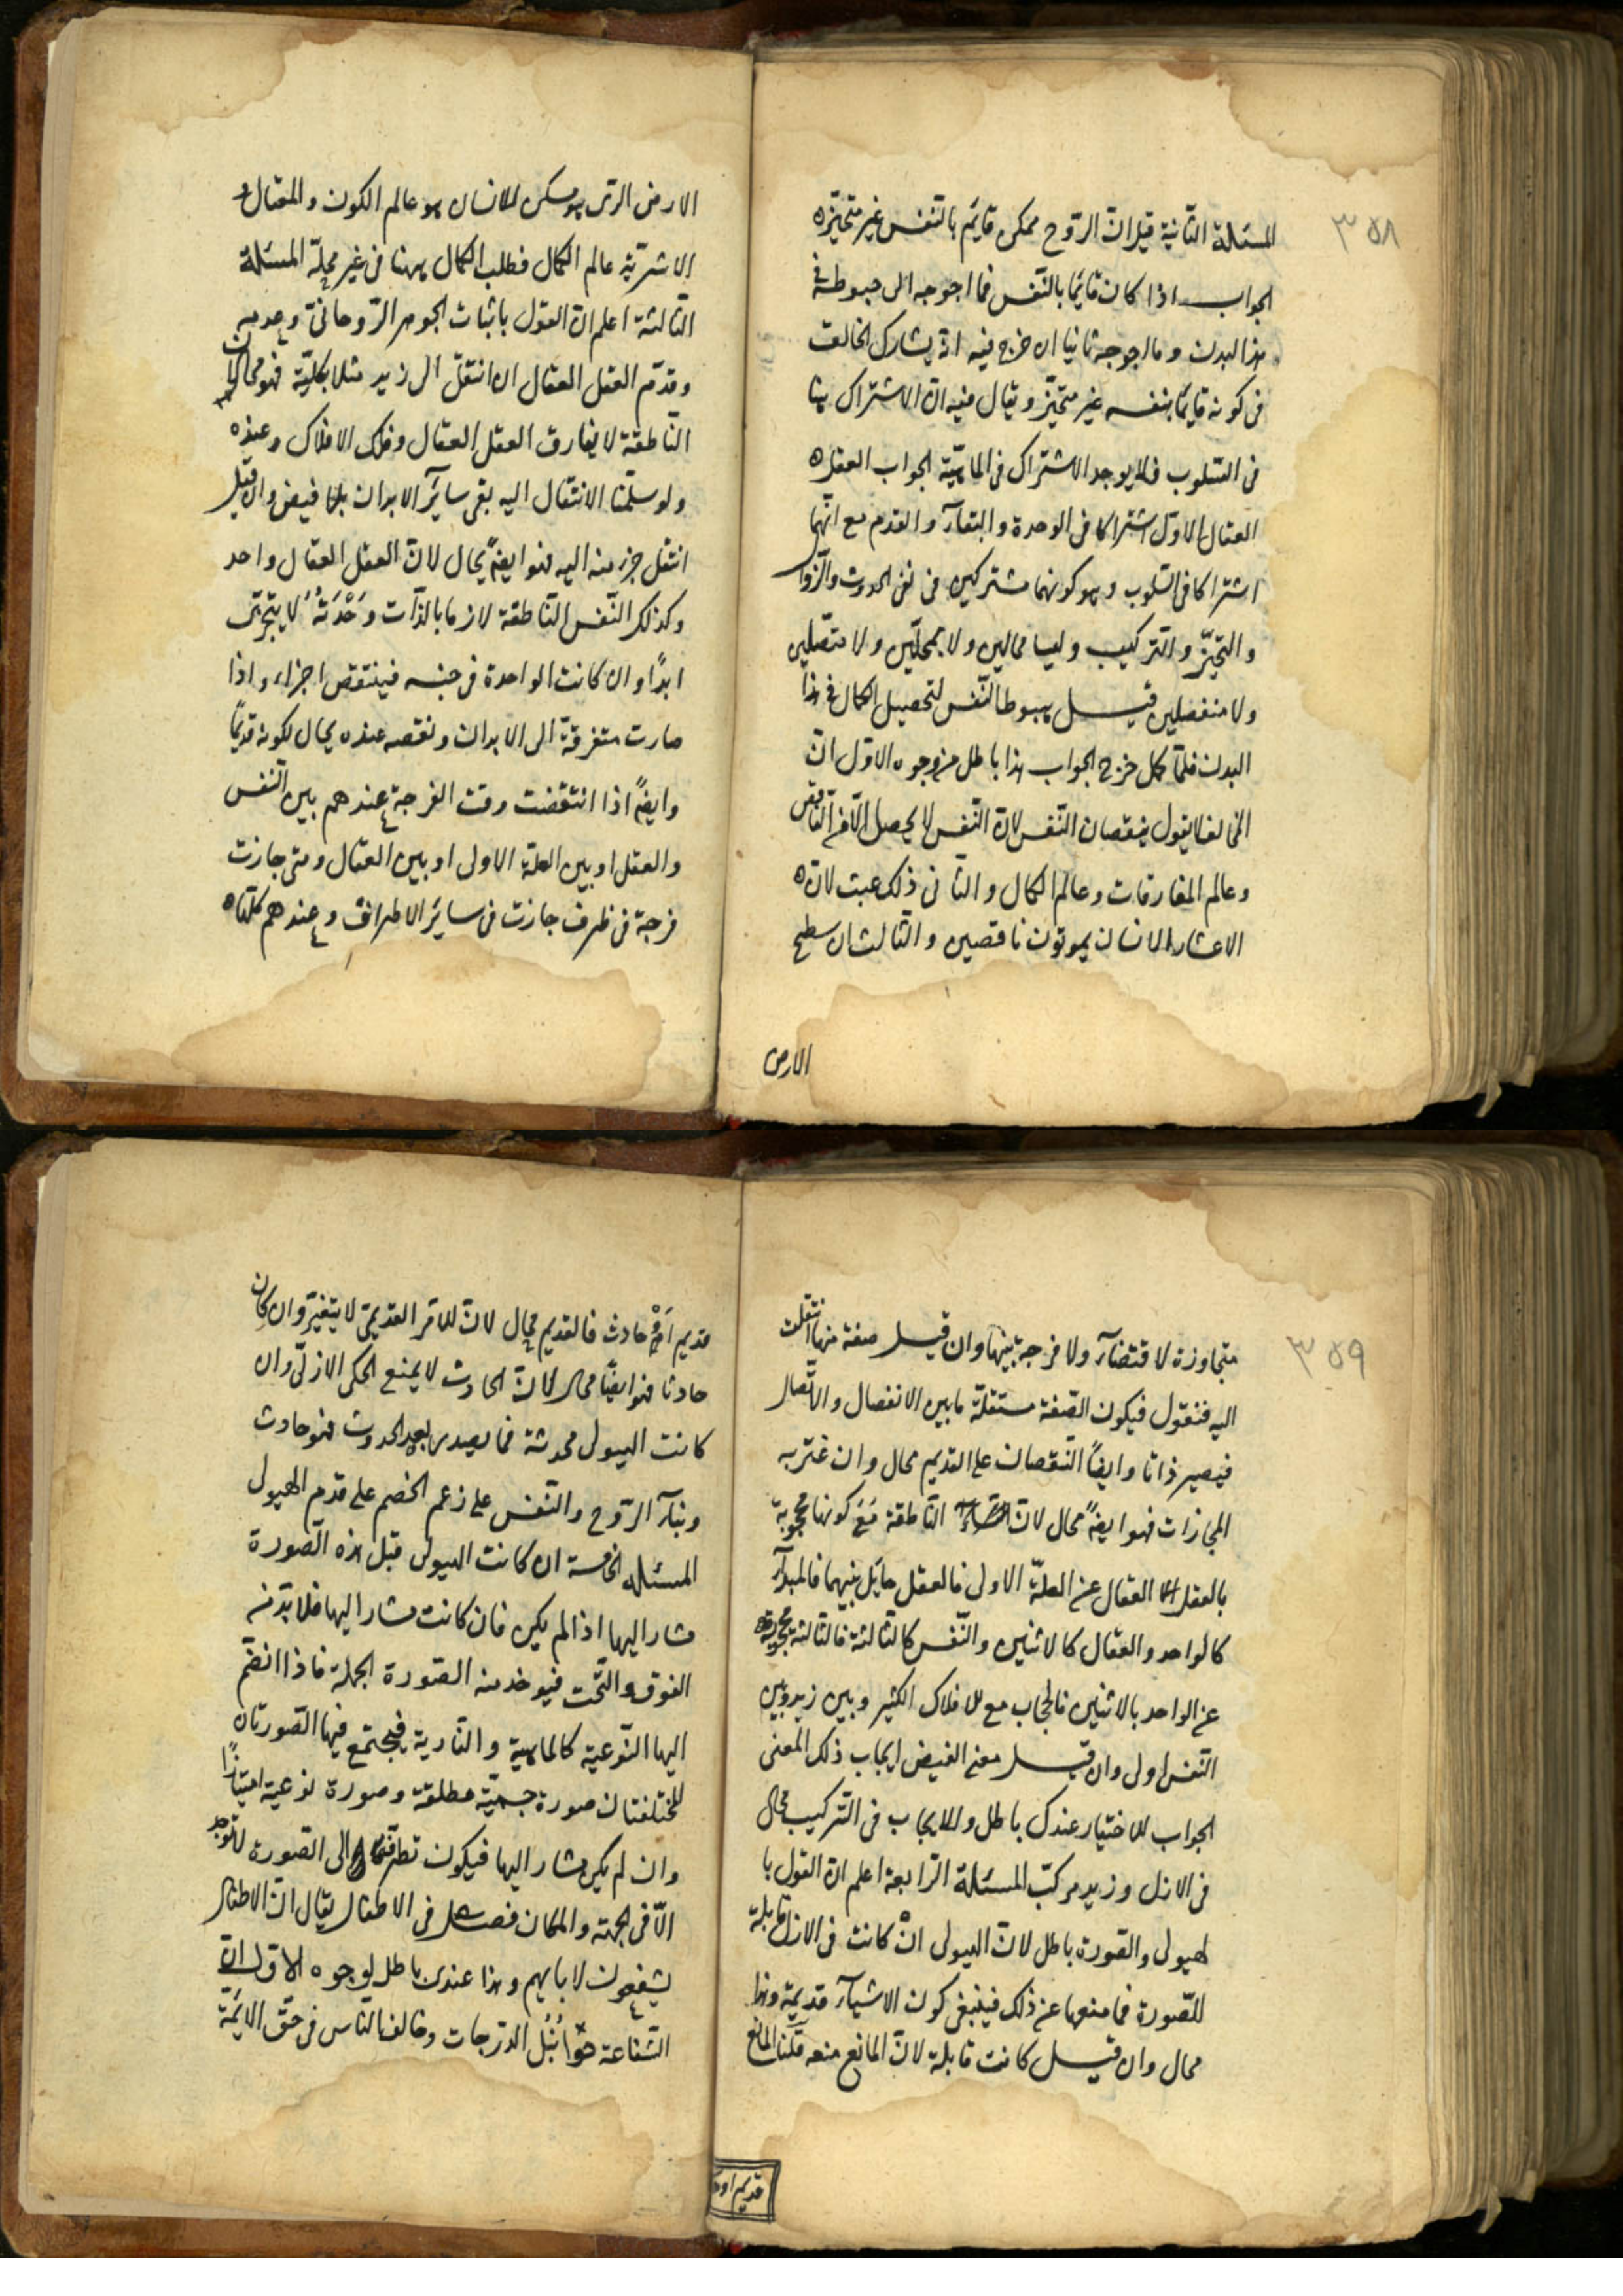 ٣٥٨
المسئلة الثانية قيل ان الروح ممكن قايم بالنفس غير متحيزه
الجواب اذا كان قايما بالنفس فما احوجه الى هبوطه في
هذا البدن وما احوجه ثانيا ان خرج فيه اذ يشارك الخالف
فى كونه قايما بنفسه غير متحيّز ويقال فيه انّ الاشتراك هنا
فى السّلوب فلا يوجد الاشتراك فى الماهيّة الجواب العقل
العقال الاوّل اشتراكا فى الوحدة والبقآء والقدم مع انّهما
اشتراكا فى السّلوب وهو كونهما مشتركين فى نفى الحدوث والزّوا
والتحيّز والتركيب وليسا محالين ولا بمحلّين ولا متّصلين
ولا منفصلين قيل هبوط النّفس لتحصيل الكمال فى هذا
البدن فلمّا كمل خرج الجواب هذا باطل من وجوه الاوّل انّ
المخالف لا يقول بنقصان النّفس لانّ النّفس لا يحصل الّا فى النّاقص
وعالم المفارقات وعالم الكمال والثانى ذلك عبث لانّ
الاعشار الانسان يموتون ناقصين والثالث ان سطح
الارض
الارض الّتى هو مسكن للانسان هو عالم الكون والمقال و
الاشرقيّة عالم الكمال فطلب الكمال ههنا فى غير محلّة المسئلة
الثّالثة اعلم انّ القول باثبات الجوهر الرّوحانىّ وعدمه
وقدّم العقل العقال ان انتقل الى زيد مثلا بكليّة فهو محال لان
النّاطقة لا يفارق العقل العقال وفلك الافلاك وعنده
ولو سلّمنا الانتقال اليه بقى ساير الابدان بلا فيض وان قيل
انتقل جزء منه اليه فهو ايضًا محال لانّ العقل العقال واحد
وكذلك النّفس النّاطقة لازما بالذّات وَحْدَتُهُ لا يتجزّى
ابدًا وان كانت الواحدة فى جنسه فينتقص اجزاء واذا
صارت متفرقة الى الابدان ونقصه عنده محال لكونه قديمًا
وايضًا اذا انتقضت وقت الفرجة عندهم بين النّفس
والعقل او بين العلّة الاولى او بين العقال ومتى جازت
فرجة فى ظرف جازت فى ساير الاطراف وعندهم كلّها
٣٥٩
متجاوزة لا قتضآء ولا فرجة بينها وان قيل صفة منها انتقلت
اليه فنقول فيكون الصّفة مستقلّة ما بين الانفصال والاتّصال
فيصير ذاتا وايضًا النّقصان على القديم محال وان غتربه
المجازات فهو ايضًا محال لانّ النّاطقة مَعَ كونها محجوبة
بالعقل العقال عن العلّة الاولى فالعقل حايل بينهما فالمبدأ
كالواحد والعقال كالاثنين والنّفس كالثالثة فالثالثة محجوبة
عن الواحد بالاثنين فالحجاب مع للافلاك الكثير وبين زيد وبين
النّفس اولى وان قيل معنى الفيض ايجاب ذلك المعنى
الجواب للاختيار عندك باطل وللايجاب فى التّركيب محال
فى الازل وزيد مركبّ المسئلة الرّابعة اعلم انّ القول با
لهيولى والصّورة باطل لانّ الهيولى انْ كانت فى الازل قابلة
للصّورة فما منعها عن ذلك فينبغى كون الاشيآء قديمة وهذا
محال وان قيل كانت قابلة لانّ المانع منعه قلنا المانع
قديم او حا
قديم اَمْ حادث فالقديم محال لانّ للامر القديمىّ لا يتغيّر وان كان
حادثا فهو ايضًا محال لانّ الحادث لا يمنع الحكم الازلىّ وان
كانت الهيولى محدثة فما يصدر بعد الحدوث فهو حادث
وبنآء الرّوح والنّفس على زعم الخصم على قدم الهيولى
المسئله الخامسة ان كانت الهيولى قبل هذه الصّورة
مشار اليها اذا لم يكن فان كانت مشار اليها فلا بدّ من
الفوق والتّحت فيوخد منه الصّورة الجملة فاذا انضمّ
اليها النّوعية كالماهية والنّارية فيجتمع فيها الصّورتان
المختلفتان صورة جسميّة مطلقة وصورة نوعية امتيازًا
وان لم يكن مشار اليها فيكون الى الصّورة لا توجد
الّا فى الجهة والمكان فصل فى الاطفال يقال انّ الاطفال
يشفعون لابايهم وهذا عندى باطل لوجوه الاوّل انّ
الشّفاعة نُبُل الدّرجات وخالفنا النّاس فى حقّ الايمّة